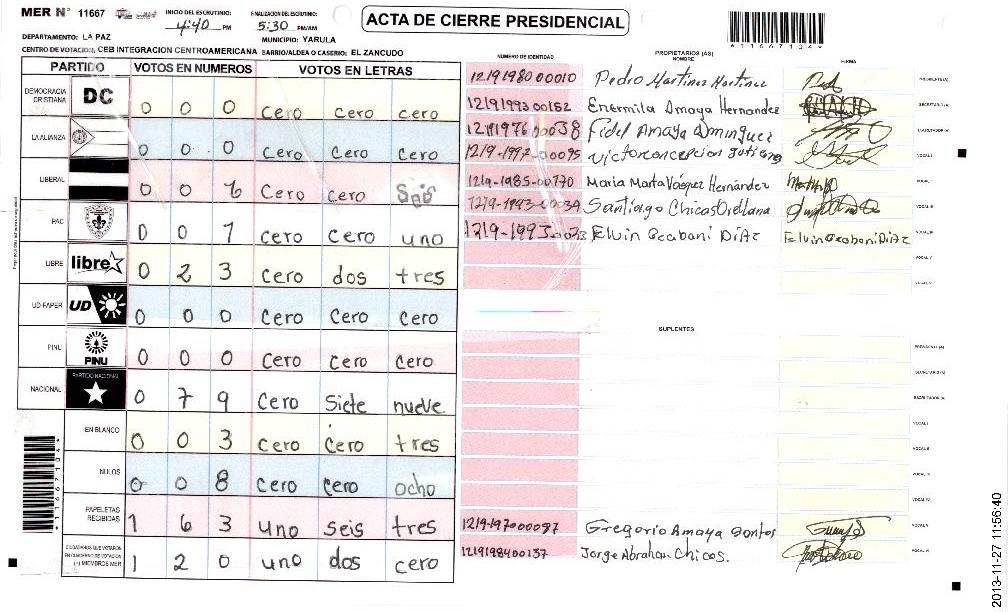 MER Nº 11667
INICIO DEL ESCRUTINIO: 4:40 PM
FINALIZACION DEL ESCRUTINIO: 5:30 PM/AM
ACTA DE CIERRE PRESIDENCIAL
*11667104*
DEPARTAMENTO: LA PAZ
MUNICIPIO: YARULA
CENTRO DE VOTACION: CEB INTEGRACION CENTROAMERICANA BARRIO/ALDEA O CASERIO: EL ZANCUDO
PARTIDO VOTOS EN NUMEROS VOTOS EN LETRAS
DEMOCRACIA CRISTIANA DC 0 0 0 cero cero cero
LA ALIANZA 0 0 0 cero cero cero
LIBERAL 0 0 6 cero cero Seis
PAC 0 0 1 cero cero uno
LIBRE libre 0 2 3 cero dos tres
UD-FAPER UD 0 0 0 cero cero cero
PINU PINU 0 0 0 cero cero cero
NACIONAL PARTIDO NACIONAL 0 7 9 cero Siete nueve
EN BLANCO 0 0 3 cero cero tres
NULOS 0 0 8 cero cero ocho
PAPELETAS RECIBIDAS 1 6 3 uno seis tres
CIUDADANOS QUE VOTARON EN CUADERNO DE VOTACION (+) MIEMBROS MER 1 2 0 uno dos cero
*11667104*
NUMERO DE IDENTIDAD PROPIETARIOS (AS) NOMBRE FIRMA
1219198000010 Pedro Martinez Martinez PRESIDENTE (A)
1219199300162 Enermila Amaya Hernandez SECRETARIO (A)
1219197600038 Fidel Amaya Dominguez ESCRUTADOR (A)
1219-1997-00095 Victor concepcion VOCAL I
1219-1985-00770 Maria Marta Vásquez Hernández VOCAL II
1219-1993-00034 Santiago Chicas Orellana VOCAL III
1219-1993-00 Elvin Ocabani DiAz Elvin Ocabani DiAz
VOCAL V
SUPLENTES
PRESIDENTE (A)
SECRETARIO (A)
ESCRUTADOR (A)
VOCAL I
VOCAL II
VOCAL III
VOCAL IV
1219-197000097 Gregorio Amaya Santos VOCAL V
1219198400137 Jorge Abrahan Chicas.
2013-11-27 11:56:40